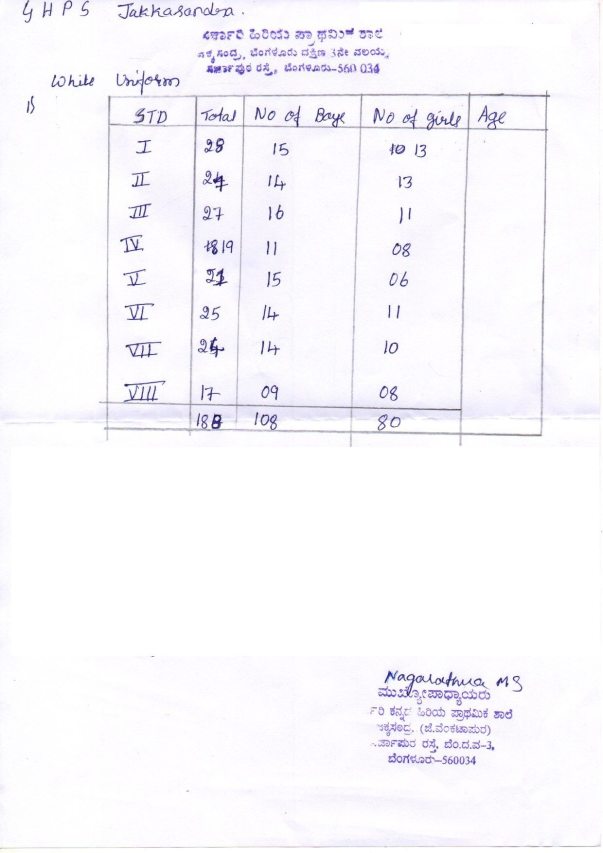 GHPS Jakkasandra.
ಸರ್ಕಾರಿ ಹಿರಿಯ ಪ್ರಾಥಮಿಕ ಶಾಲೆ
ಜಕ್ಕಸಂದ್ರ, ಬೆಂಗಳೂರು ದಕ್ಷಿಣ 3ನೇ ವಲಯ,
ಸರ್ಜಾಪುರ ರಸ್ತೆ, ಬೆಂಗಳೂರು-560 034
White Uniform
1)
STD Total No of Boys No of girls Age
I 28 15 13
II 27 14 13
III 27 16 11
IV 19 11 08
V 21 15 06
VI 25 14 11
VII 24 14 10
VIII 17 09 08
188 108 80
Nagarathna MS
ಮುಖ್ಯೋಪಾಧ್ಯಾಯರು
ಕನ್ನಡ ಹಿರಿಯ ಪ್ರಾಥಮಿಕ ಶಾಲೆ
ಜಕ್ಕಸಂದ್ರ. (ಜೆ.ವೆಂಕಟಾಪುರ)
ಸರ್ಜಾಪುರ ರಸ್ತೆ, ಬೆಂ.ದ.ವ-3,
ಬೆಂಗಳೂರು-560034